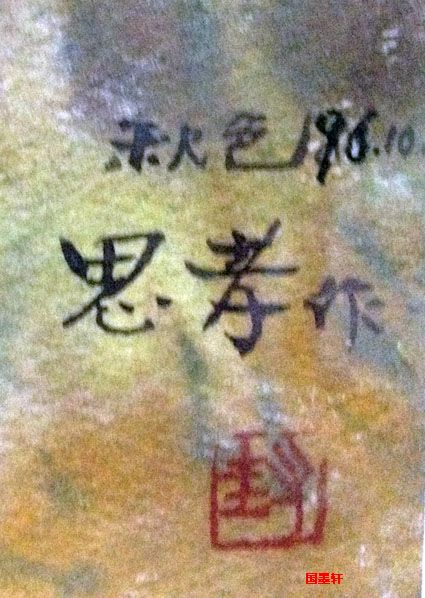 秋色 196.10.
思孝作
国墨轩